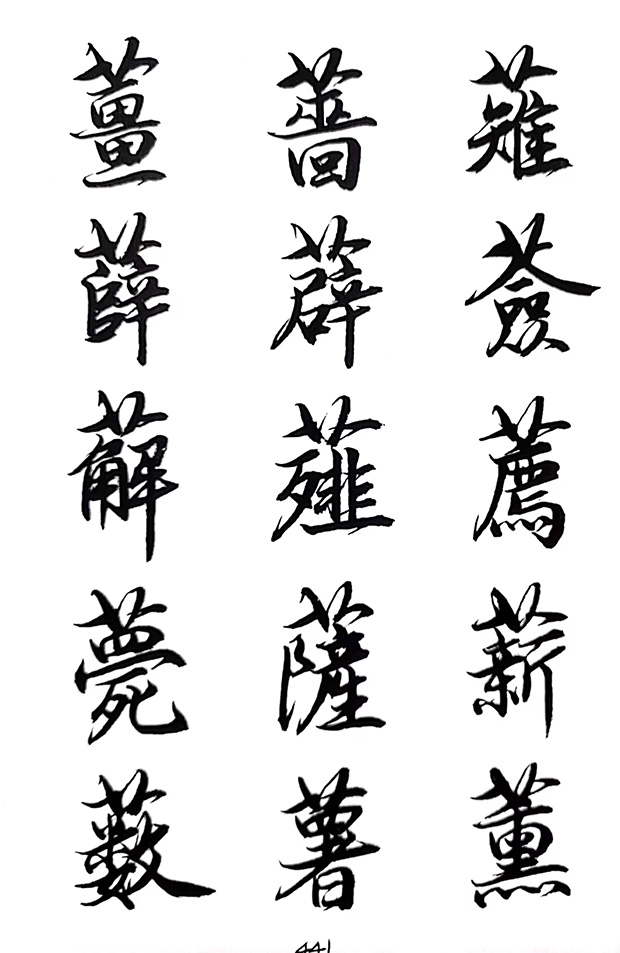 薑薔薙
薛薜薟
薢薤薦
薨薩薪
薮薯薰
441